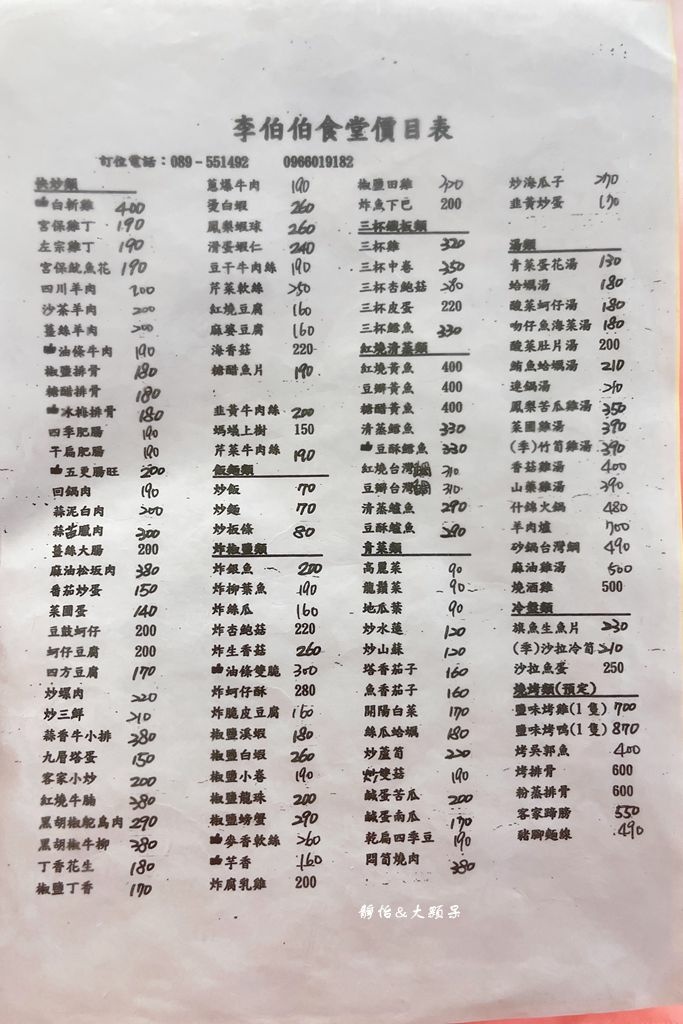 李伯伯食堂價目表
訂位電話：089－551492 0966019182
快炒類
白斬雞 400
宮保雞丁 190
左宗雞丁 190
宮保魷魚花 190
四川羊肉 200
沙茶羊肉 200
薑絲羊肉 200
油條牛肉 190
椒鹽排骨 180
糖醋排骨 180
冰梅排骨 180
四季肥腸 190
干扁肥腸 190
五更腸旺 200
回鍋肉 190
蒜泥白肉 200
蒜苗臘肉 300
薑絲大腸 200
麻油松坂肉 380
番茄炒蛋 150
菜圃蛋 140
豆鼓蚵仔 200
蚵仔豆腐 200
四方豆腐 170
炒螺肉 220
炒三鮮 210
蒜香牛小排 380
九層塔蛋 150
客家小炒 200
紅燒牛腩 380
黑胡椒鴕鳥肉 290
黑胡椒牛柳 380
丁香花生 180
椒鹽丁香 170
蔥爆牛肉 190
燙白蝦 260
鳳梨蝦球 260
滑蛋蝦仁 240
豆干牛肉絲 190
芹菜軟絲 250
紅燒豆腐 160
麻婆豆腐 160
海香菇 220
糖醋魚片 190
韭黃牛肉絲 200
螞蟻上樹 150
芹菜牛肉絲 190
飯麵類
炒飯 70
炒麵 70
炒板條 80
炸椒鹽類
炸銀魚 200
炸柳葉魚 190
炸絲瓜 160
炸杏鮑菇 220
炸生香菇 260
油條雙脆 300
炸蚵仔酥 280
炸脆皮豆腐 160
椒鹽溪蝦 180
椒鹽白蝦 260
椒鹽小卷 190
椒鹽龍珠 200
椒鹽螃蟹 290
麥香軟絲 260
芋香 160
炸腐乳雞 200
椒鹽田雞 320
炸魚下巴 200
三杯鐵板類
三杯雞 320
三杯中卷 350
三杯杏鮑菇 280
三杯皮蛋 220
三杯鱈魚 330
紅燒清蒸類
紅燒黃魚 400
豆瓣黃魚 400
糖醋黃魚 400
清蒸鱈魚 330
豆酥鱈魚 330
紅燒台灣鯛 310
豆瓣台灣鯛 310
清蒸鱸魚 290
豆酥鱸魚 290
青菜類
高麗菜 90
龍鬚菜 90
地瓜葉 90
炒水蓮 120
炒山蘇 120
塔香茄子 160
魚香茄子 160
開陽白菜 170
絲瓜蛤蠣 180
炒蘆筍 220
炒雙菇 190
鹹蛋苦瓜 200
鹹蛋南瓜 170
乾扁四季豆 190
悶筍燒肉 380
炒海瓜子 270
韭黃炒蛋 170
湯類
青菜蛋花湯 130
蛤蠣湯 180
酸菜蚵仔湯 180
吻仔魚海菜湯 180
酸菜肚片湯 200
鮪魚蛤蠣湯 210
連鍋湯 210
鳳梨苦瓜雞湯 350
菜圃雞湯 390
(季)竹筍雞湯 390
香菇雞湯 400
山藥雞湯 390
什錦火鍋 480
羊肉爐 700
砂鍋台灣鯛 490
麻油雞湯 500
燒酒雞 500
冷盤類
旗魚生魚片 230
(季)沙拉冷筍 210
沙拉魚蛋 250
燒烤類(預定)
鹽味烤雞(1隻) 700
鹽味烤鴨(1隻) 870
烤吳郭魚 400
烤排骨 600
粉蒸排骨 600
客家蹄膀 550
豬腳麵線 490
靜怡&大顆呆